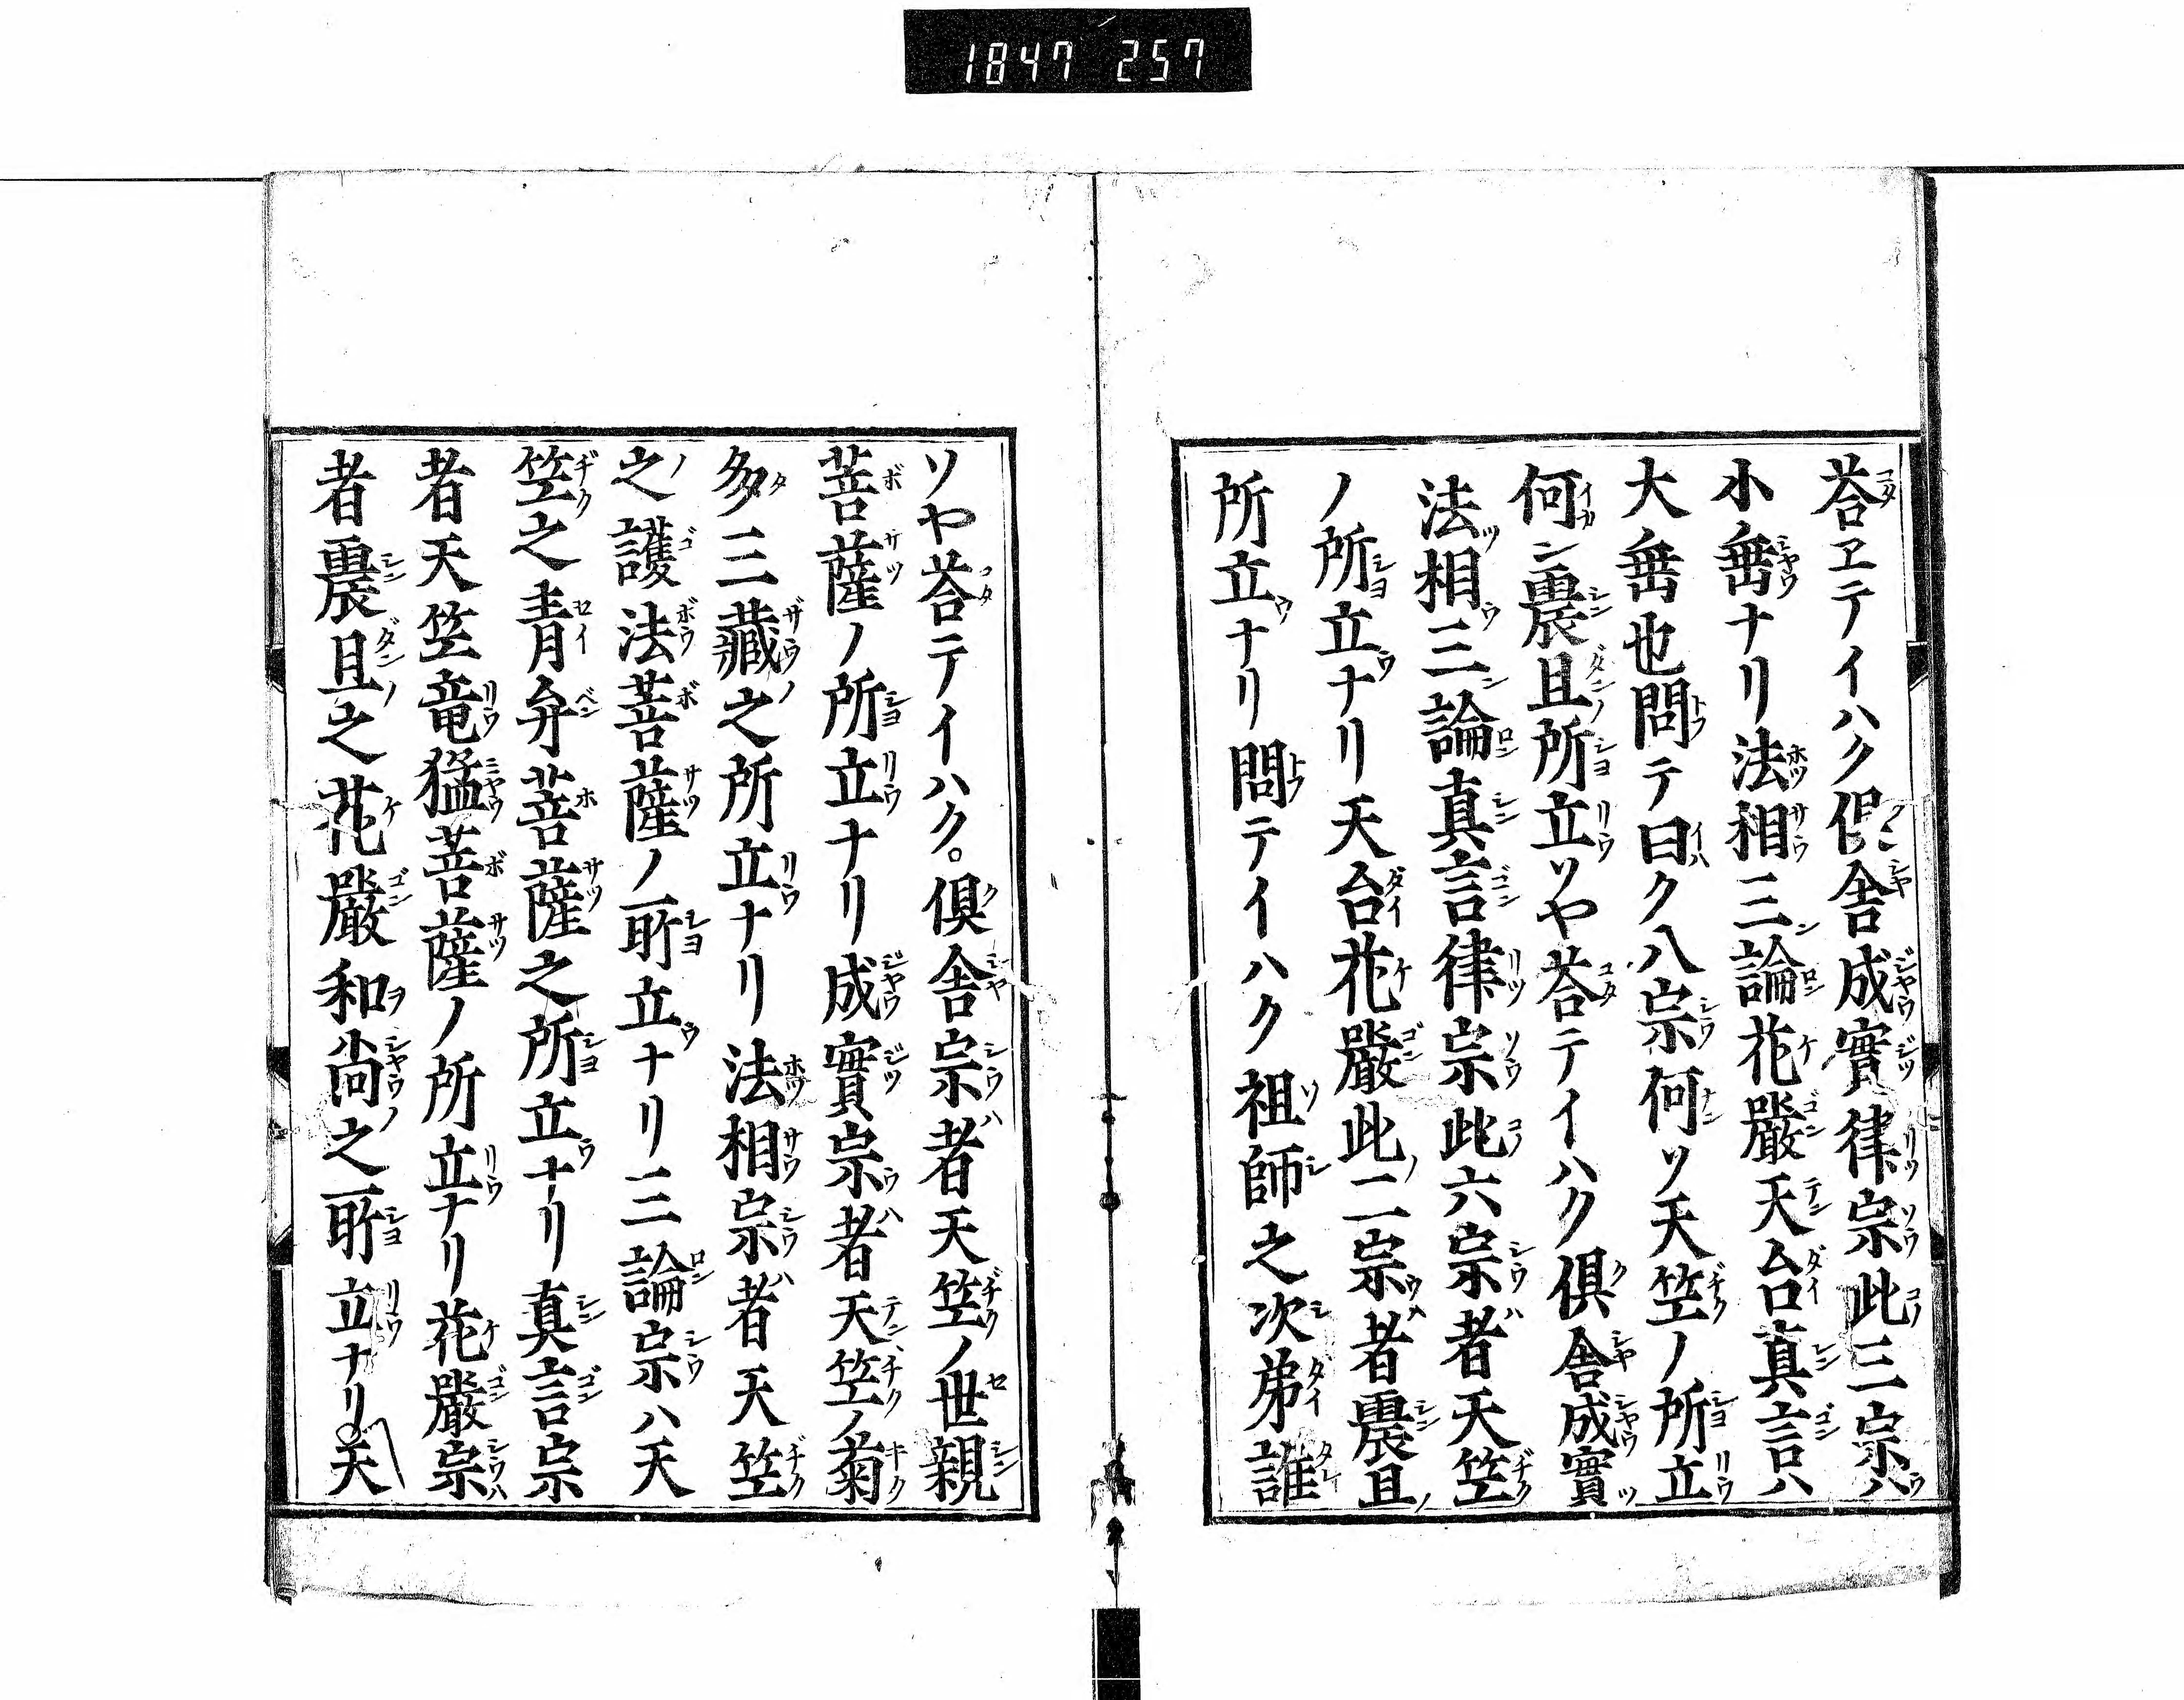 1847 257
荅ヱテイハク倶舎成實律宗此三宗ハ
小乗ナリ法相三論花嚴天台真言ハ
大乗也問テ曰ク八宗何ソ天笠ノ所立
何ン震旦所立ソヤ荅テイハク倶舎成實
法相三論真言律宗此六宗者天笠
ノ所立ナリ天台花嚴此二宗者震旦
所立ナリ問テイハク祖師之次弟誰
ソヤ荅テイハク。倶舎宗者天笠ノ世親
菩薩ノ所立ナリ成實宗者天笠ノ菊
多三藏之所立ナリ法相宗者天笠
之護法菩薩ノ所立ナリ三論宗ハ天
笠之青弁菩薩之所立ナリ真言宗
者天笠竜猛菩薩ノ所立ナリ花嚴宗
者震旦之花嚴和尚之所立ナリ天